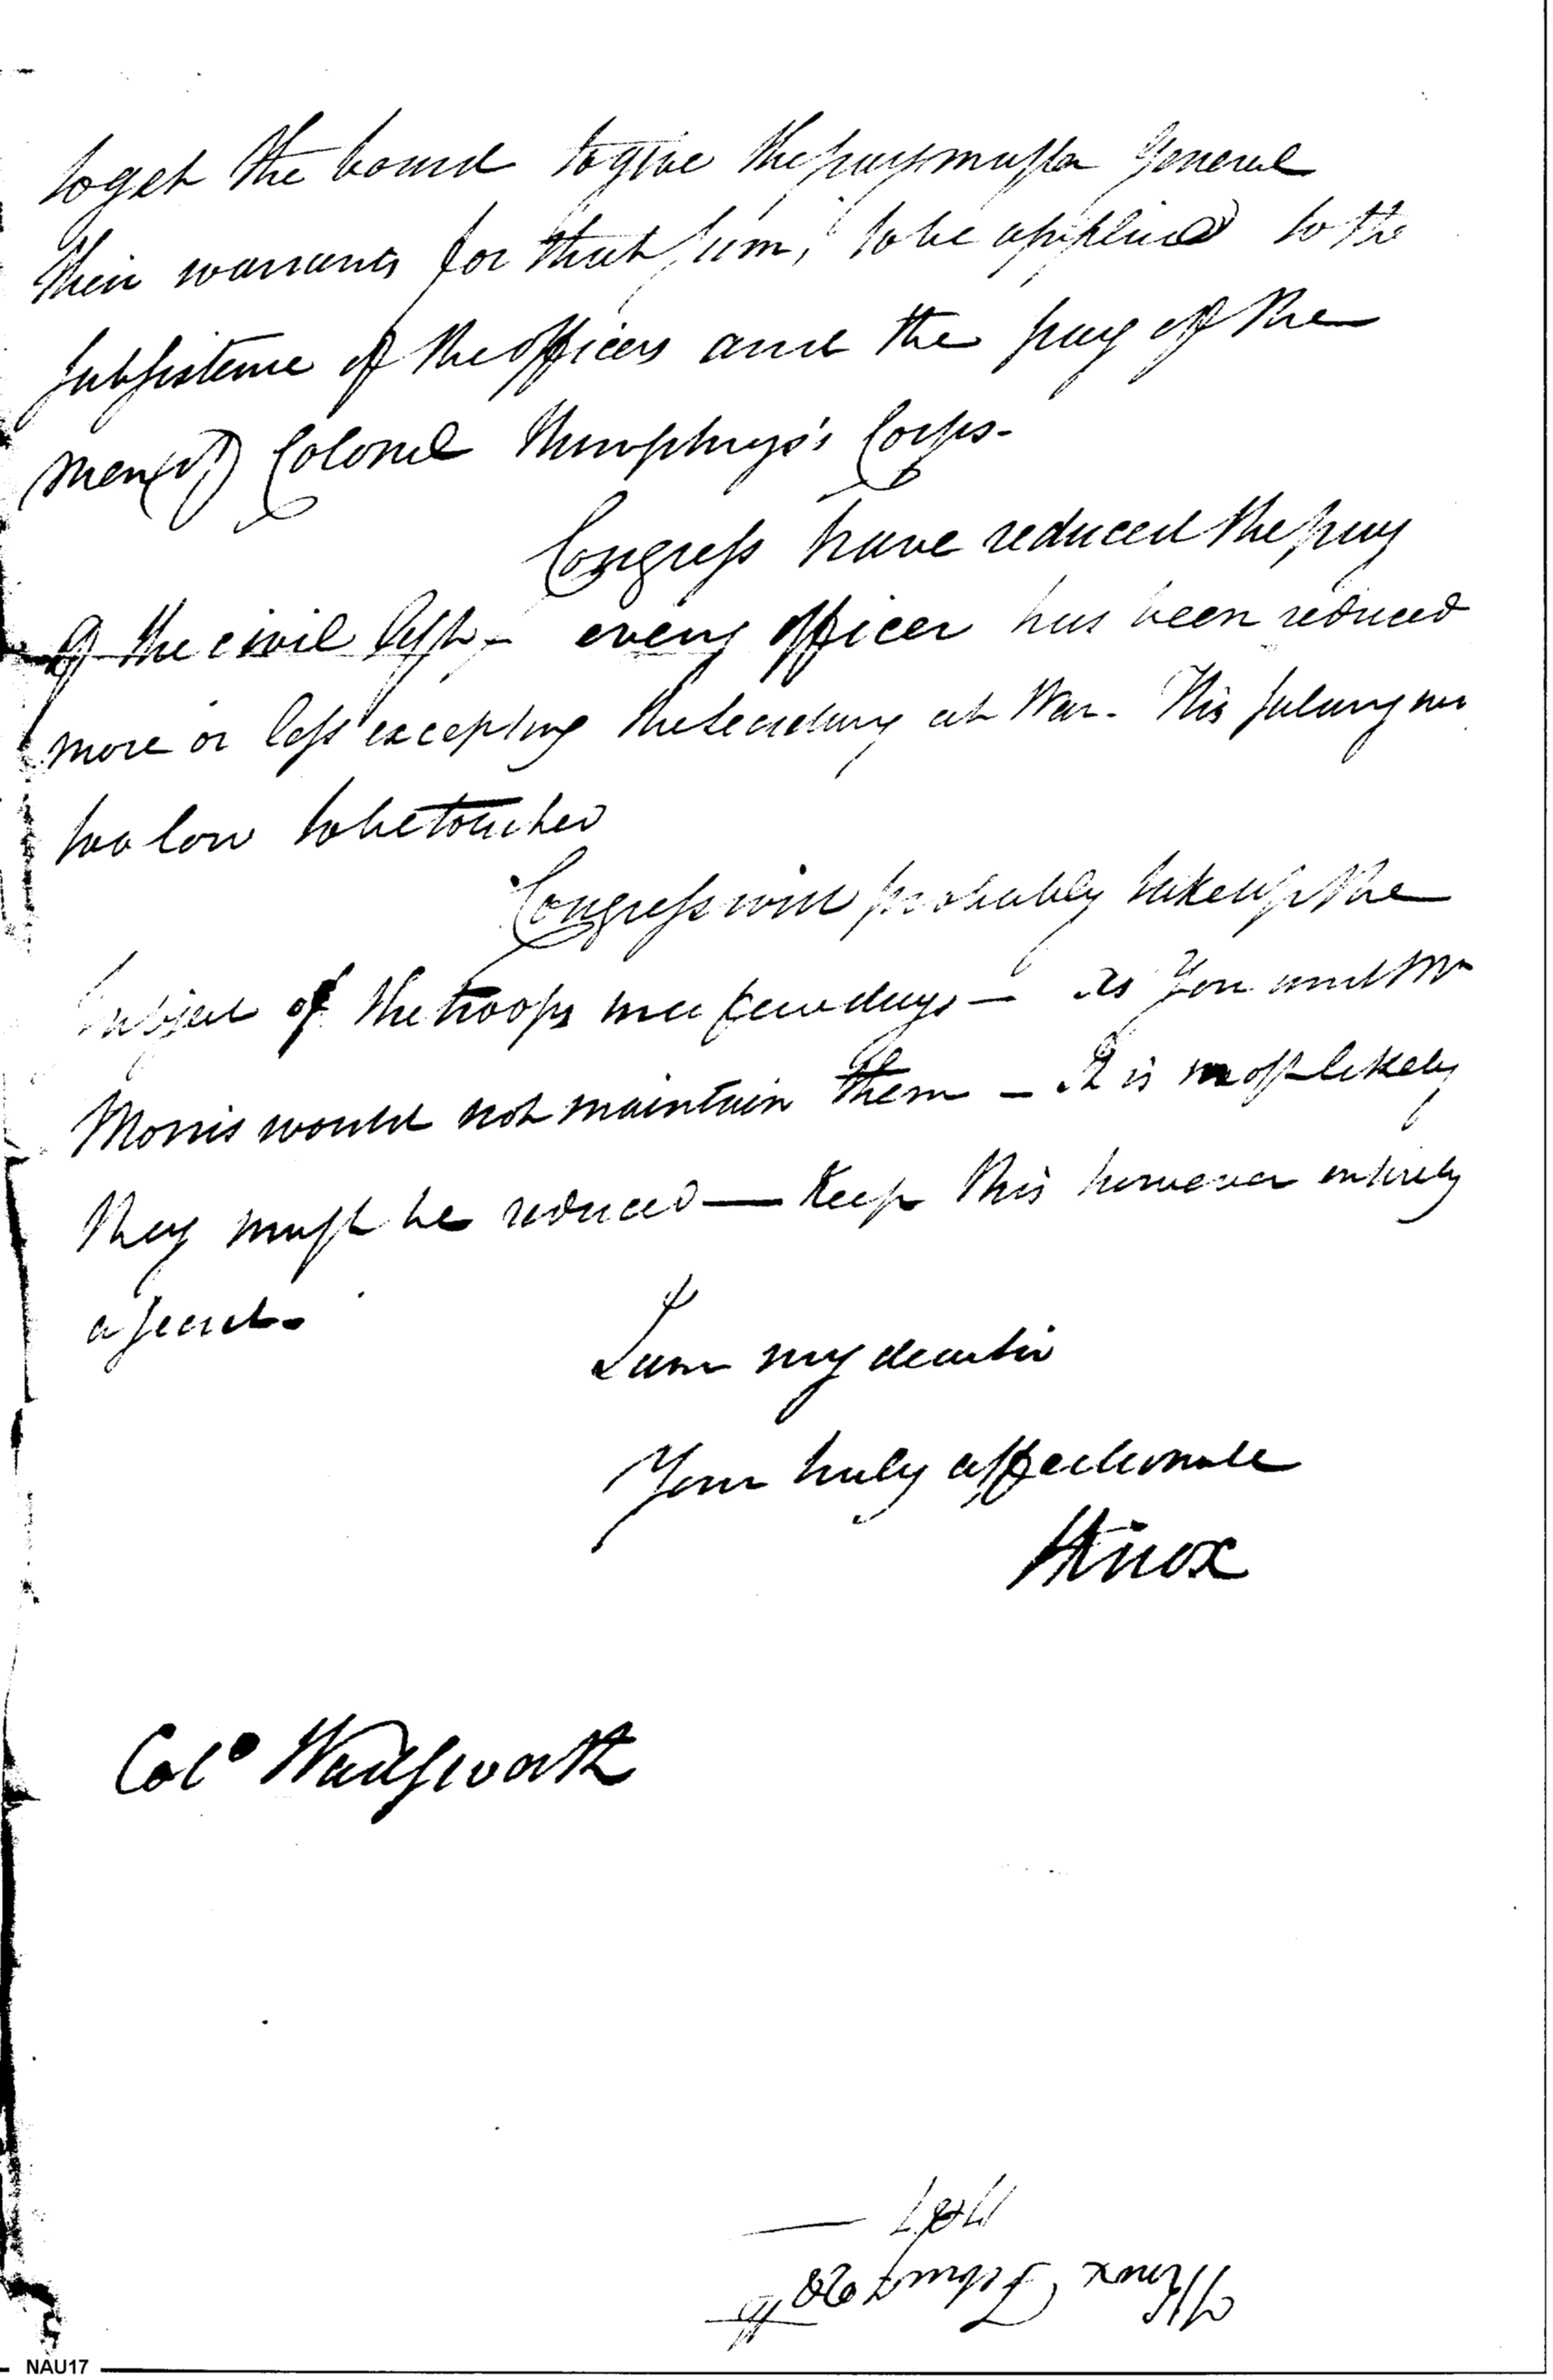 to get the board to give the paymaster general
their warrants for that sum, to be applied to the
subsistence of the officers and the pay of the
men of Colonel Humphrys's Corps-
Congress have reduced the pay
of the civil list - every officer has been reduced
more or less excepting the Secretary at War. His salary was
too low to be touched
Congress will probably take up the
subject of the troops in a few days — As You and Mr
Morris would not maintain them — It is most likely
they must be reduced — Keep this however entirely
a secret.
I am my dear sir
Your truly affectionate
HKnox
Colo Wadsworth
HKnox Februy 28th
1787 —
NAU17